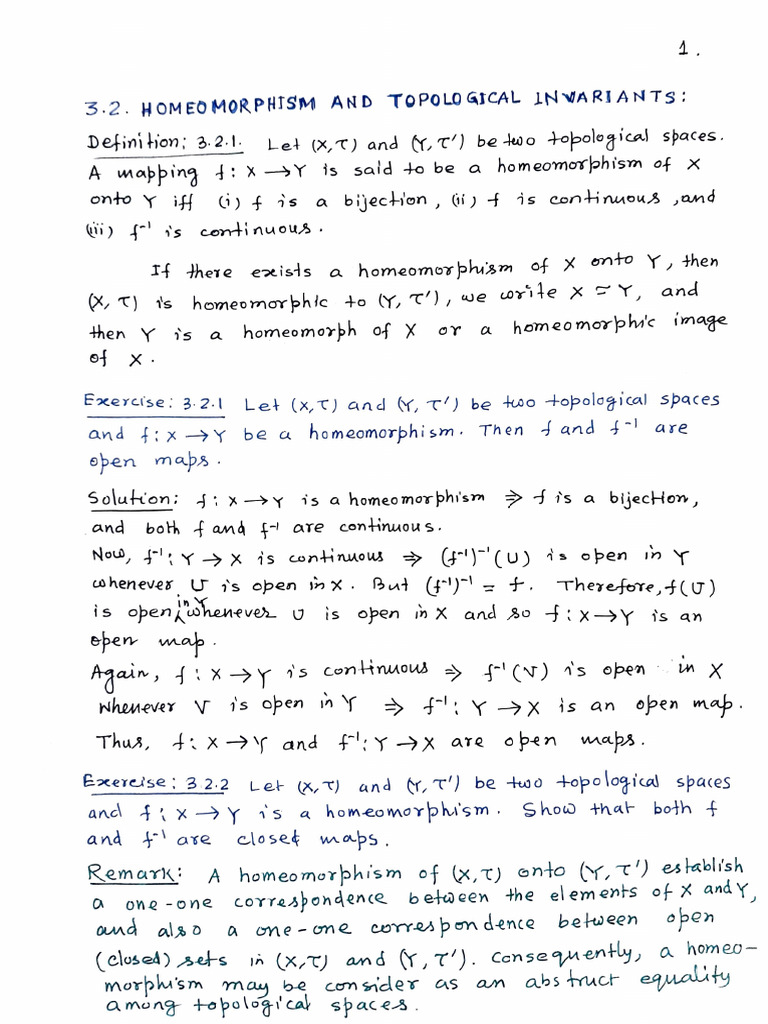 1.
3.2. HOMEOMORPHISM AND TOPOLOGICAL INVARIANTS:
Definition: 3.2.1. Let (X,τ) and (Y,τ') be two topological spaces.
A mapping f: X → Y is said to be a homeomorphism of X
onto Y iff (i) f is a bijection, (ii) f is continuous, and
(iii) f⁻¹ is continuous.
If there exists a homeomorphism of X onto Y, then
(X, τ) is homeomorphic to (Y, τ'), we write X ≃ Y, and
then Y is a homeomorph of X or a homeomorphic image
of X.
Exercise: 3.2.1 Let (X,τ) and (Y, τ') be two topological spaces
and f: X → Y be a homeomorphism. Then f and f⁻¹ are
open maps.
Solution: f: X → Y is a homeomorphism ⇒ f is a bijection,
and both f and f⁻¹ are continuous.
Now, f⁻¹: Y → X is continuous ⇒ (f⁻¹)⁻¹(U) is open in Y
whenever U is open in X. But (f⁻¹)⁻¹ = f. Therefore, f(U)
is open in Y whenever U is open in X and so f: X → Y is an
open map.
Again, f: X → Y is continuous ⇒ f⁻¹(V) is open in X
whenever V is open in Y ⇒ f⁻¹: Y → X is an open map.
Thus, f: X → Y and f⁻¹: Y → X are open maps.
Exercise: 3.2.2 Let (X,τ) and (Y,τ') be two topological spaces
and f: X → Y is a homeomorphism. Show that both f
and f⁻¹ are closed maps.
Remark: A homeomorphism of (X,τ) onto (Y,τ') establish
a one-one correspondence between the elements of X and Y,
and also a one-one correspondence between open
(closed) sets in (X,τ) and (Y,τ'). Consequently, a homeo-
morphism may be consider as an abstruct equality
among topological spaces.